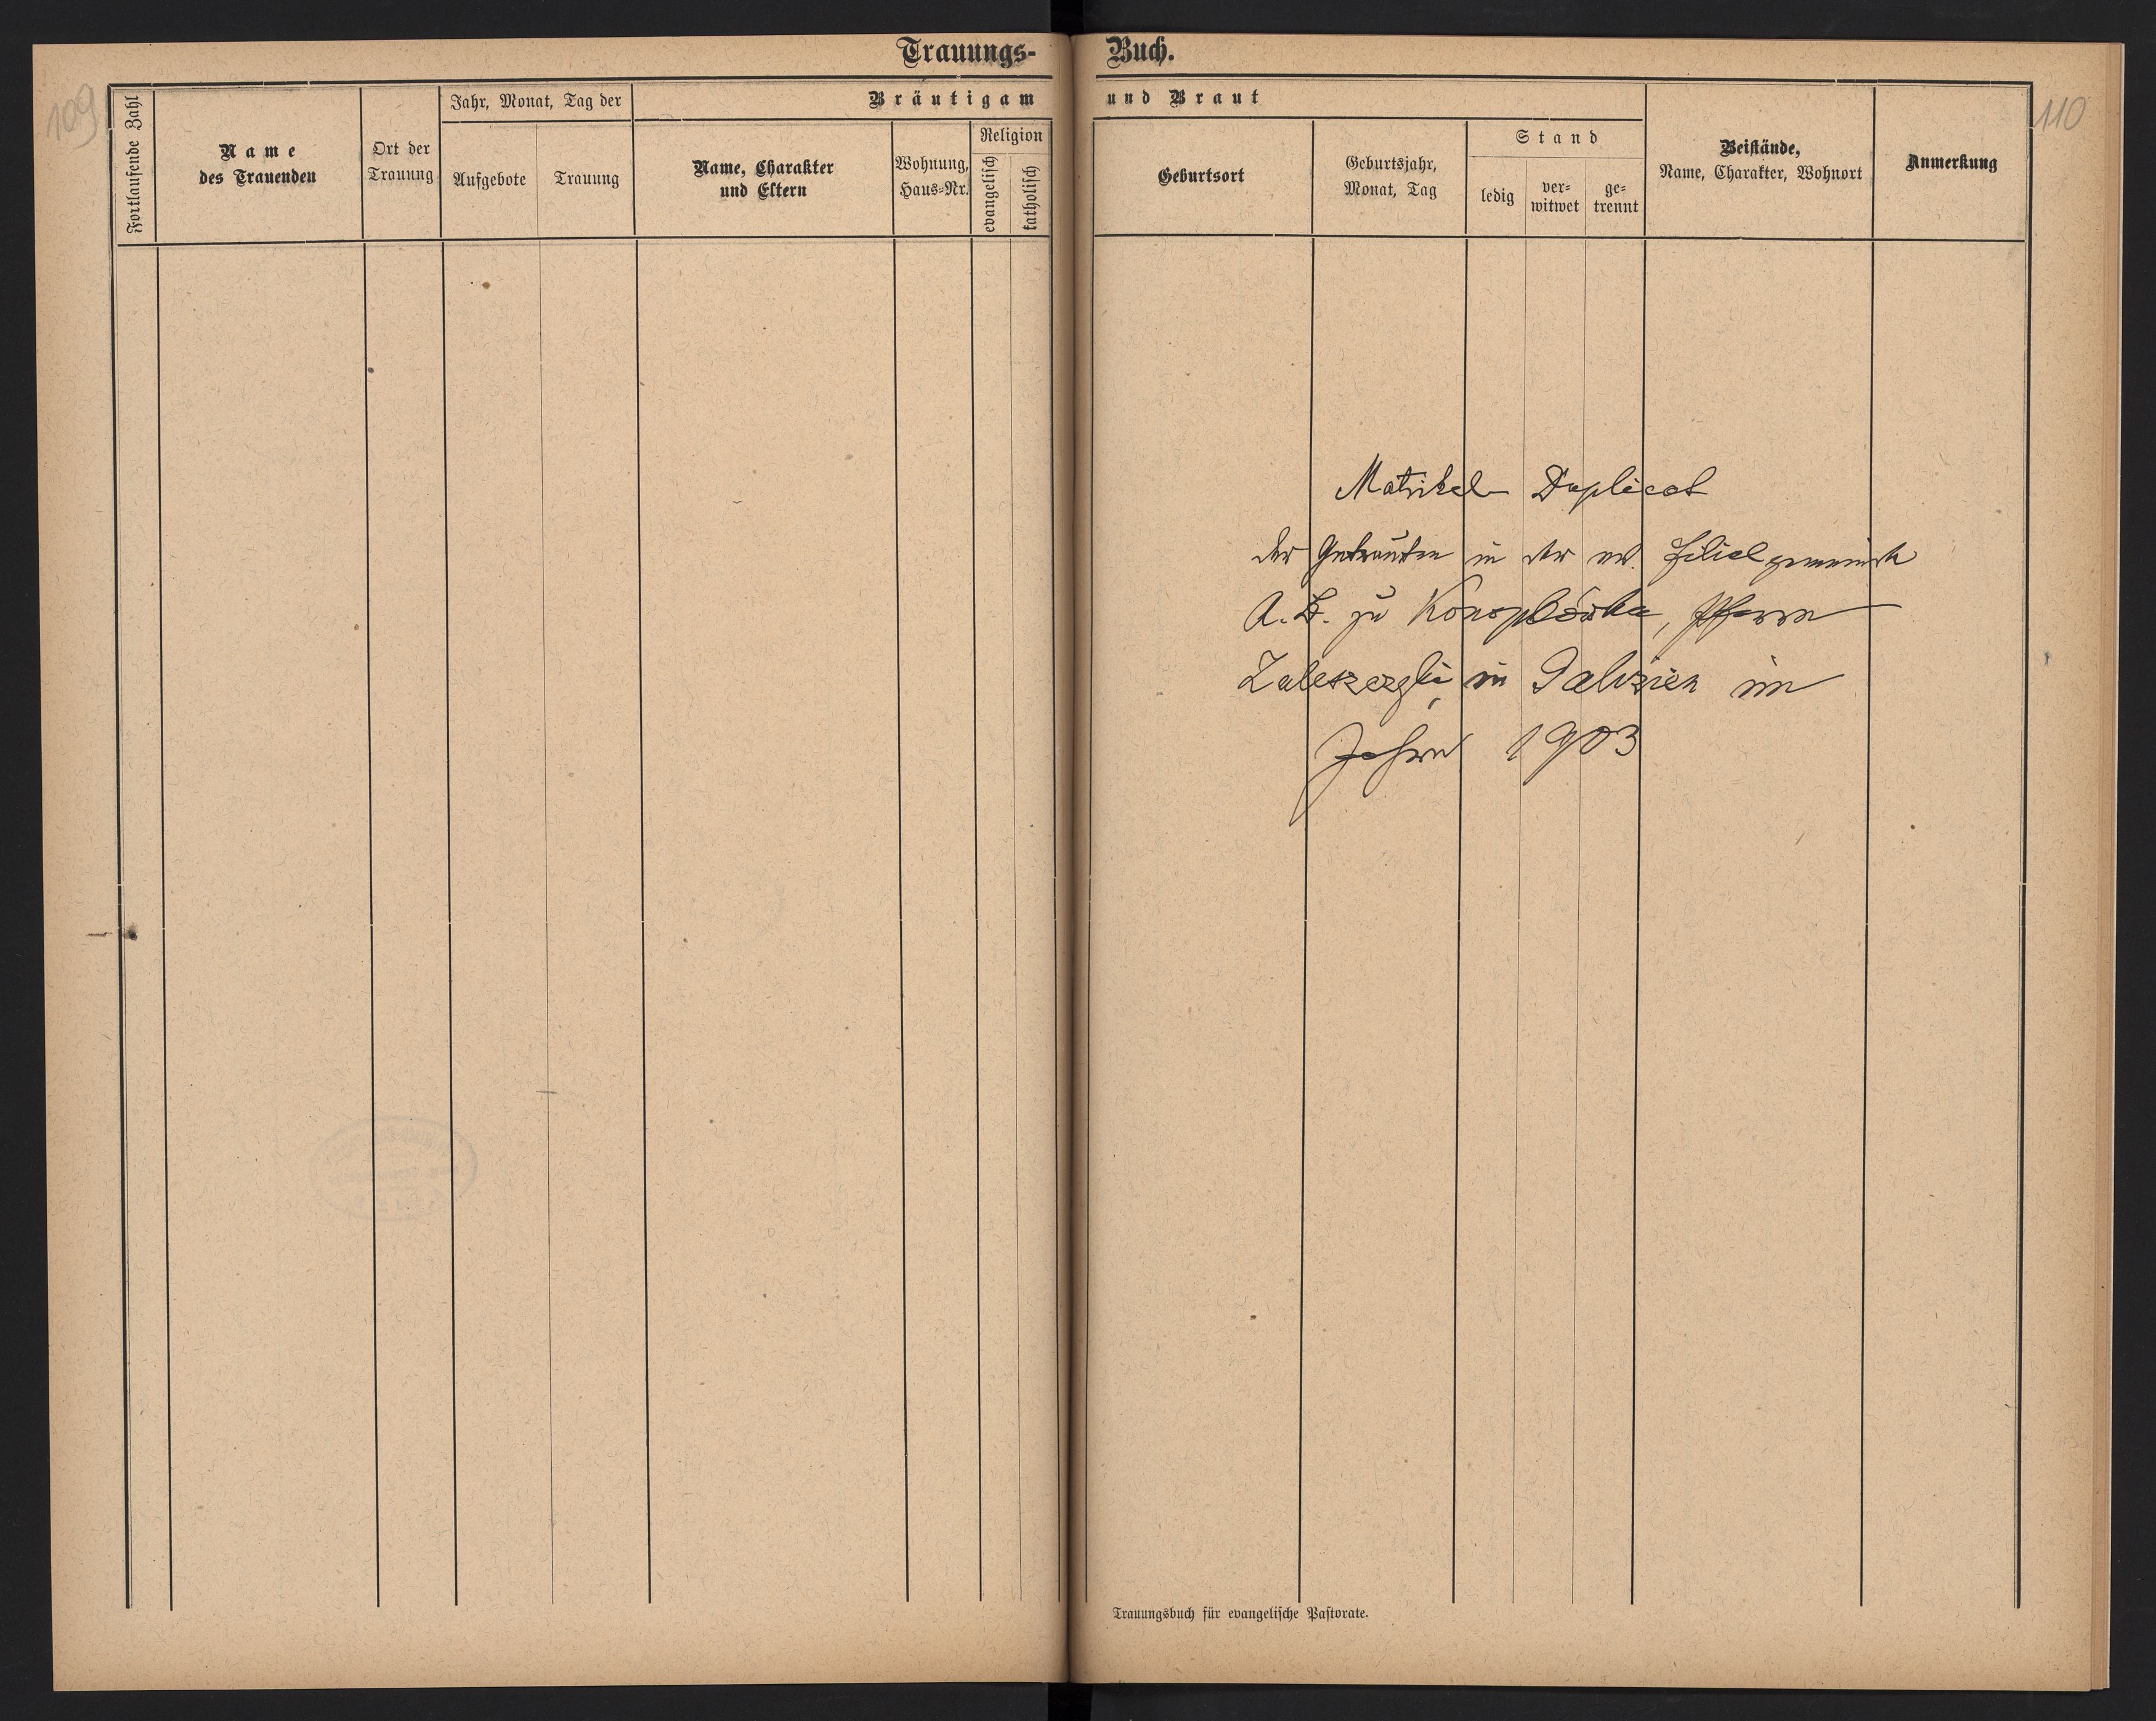 109
Trauungs-
Fortlaufende Zahl
Name
des Trauenden
Ort der
Trauung
Jahr, Monat, Tag der
Aufgebote
Trauung
Bräutigam
Name, Charakter
und Eltern
Wohnung,
Haus-Nr.
Religion
evangelisch
katholisch
Buch.
110
und Braut
Geburtsort
Geburtsjahr,
Monat, Tag
Stand
ledig
ver-
witwet
ge-
trennt
Beistände,
Name, Charakter, Wohnort
Anmerkung
Matrikel Duplicat
der Getrauten in der ev. Filialgemeinde
A. B. zu Konopkówka, Pfarre
Zaleszczyki, in Galizien im
Jahre 1903
Trauungsbuch für evangelische Pastorate.